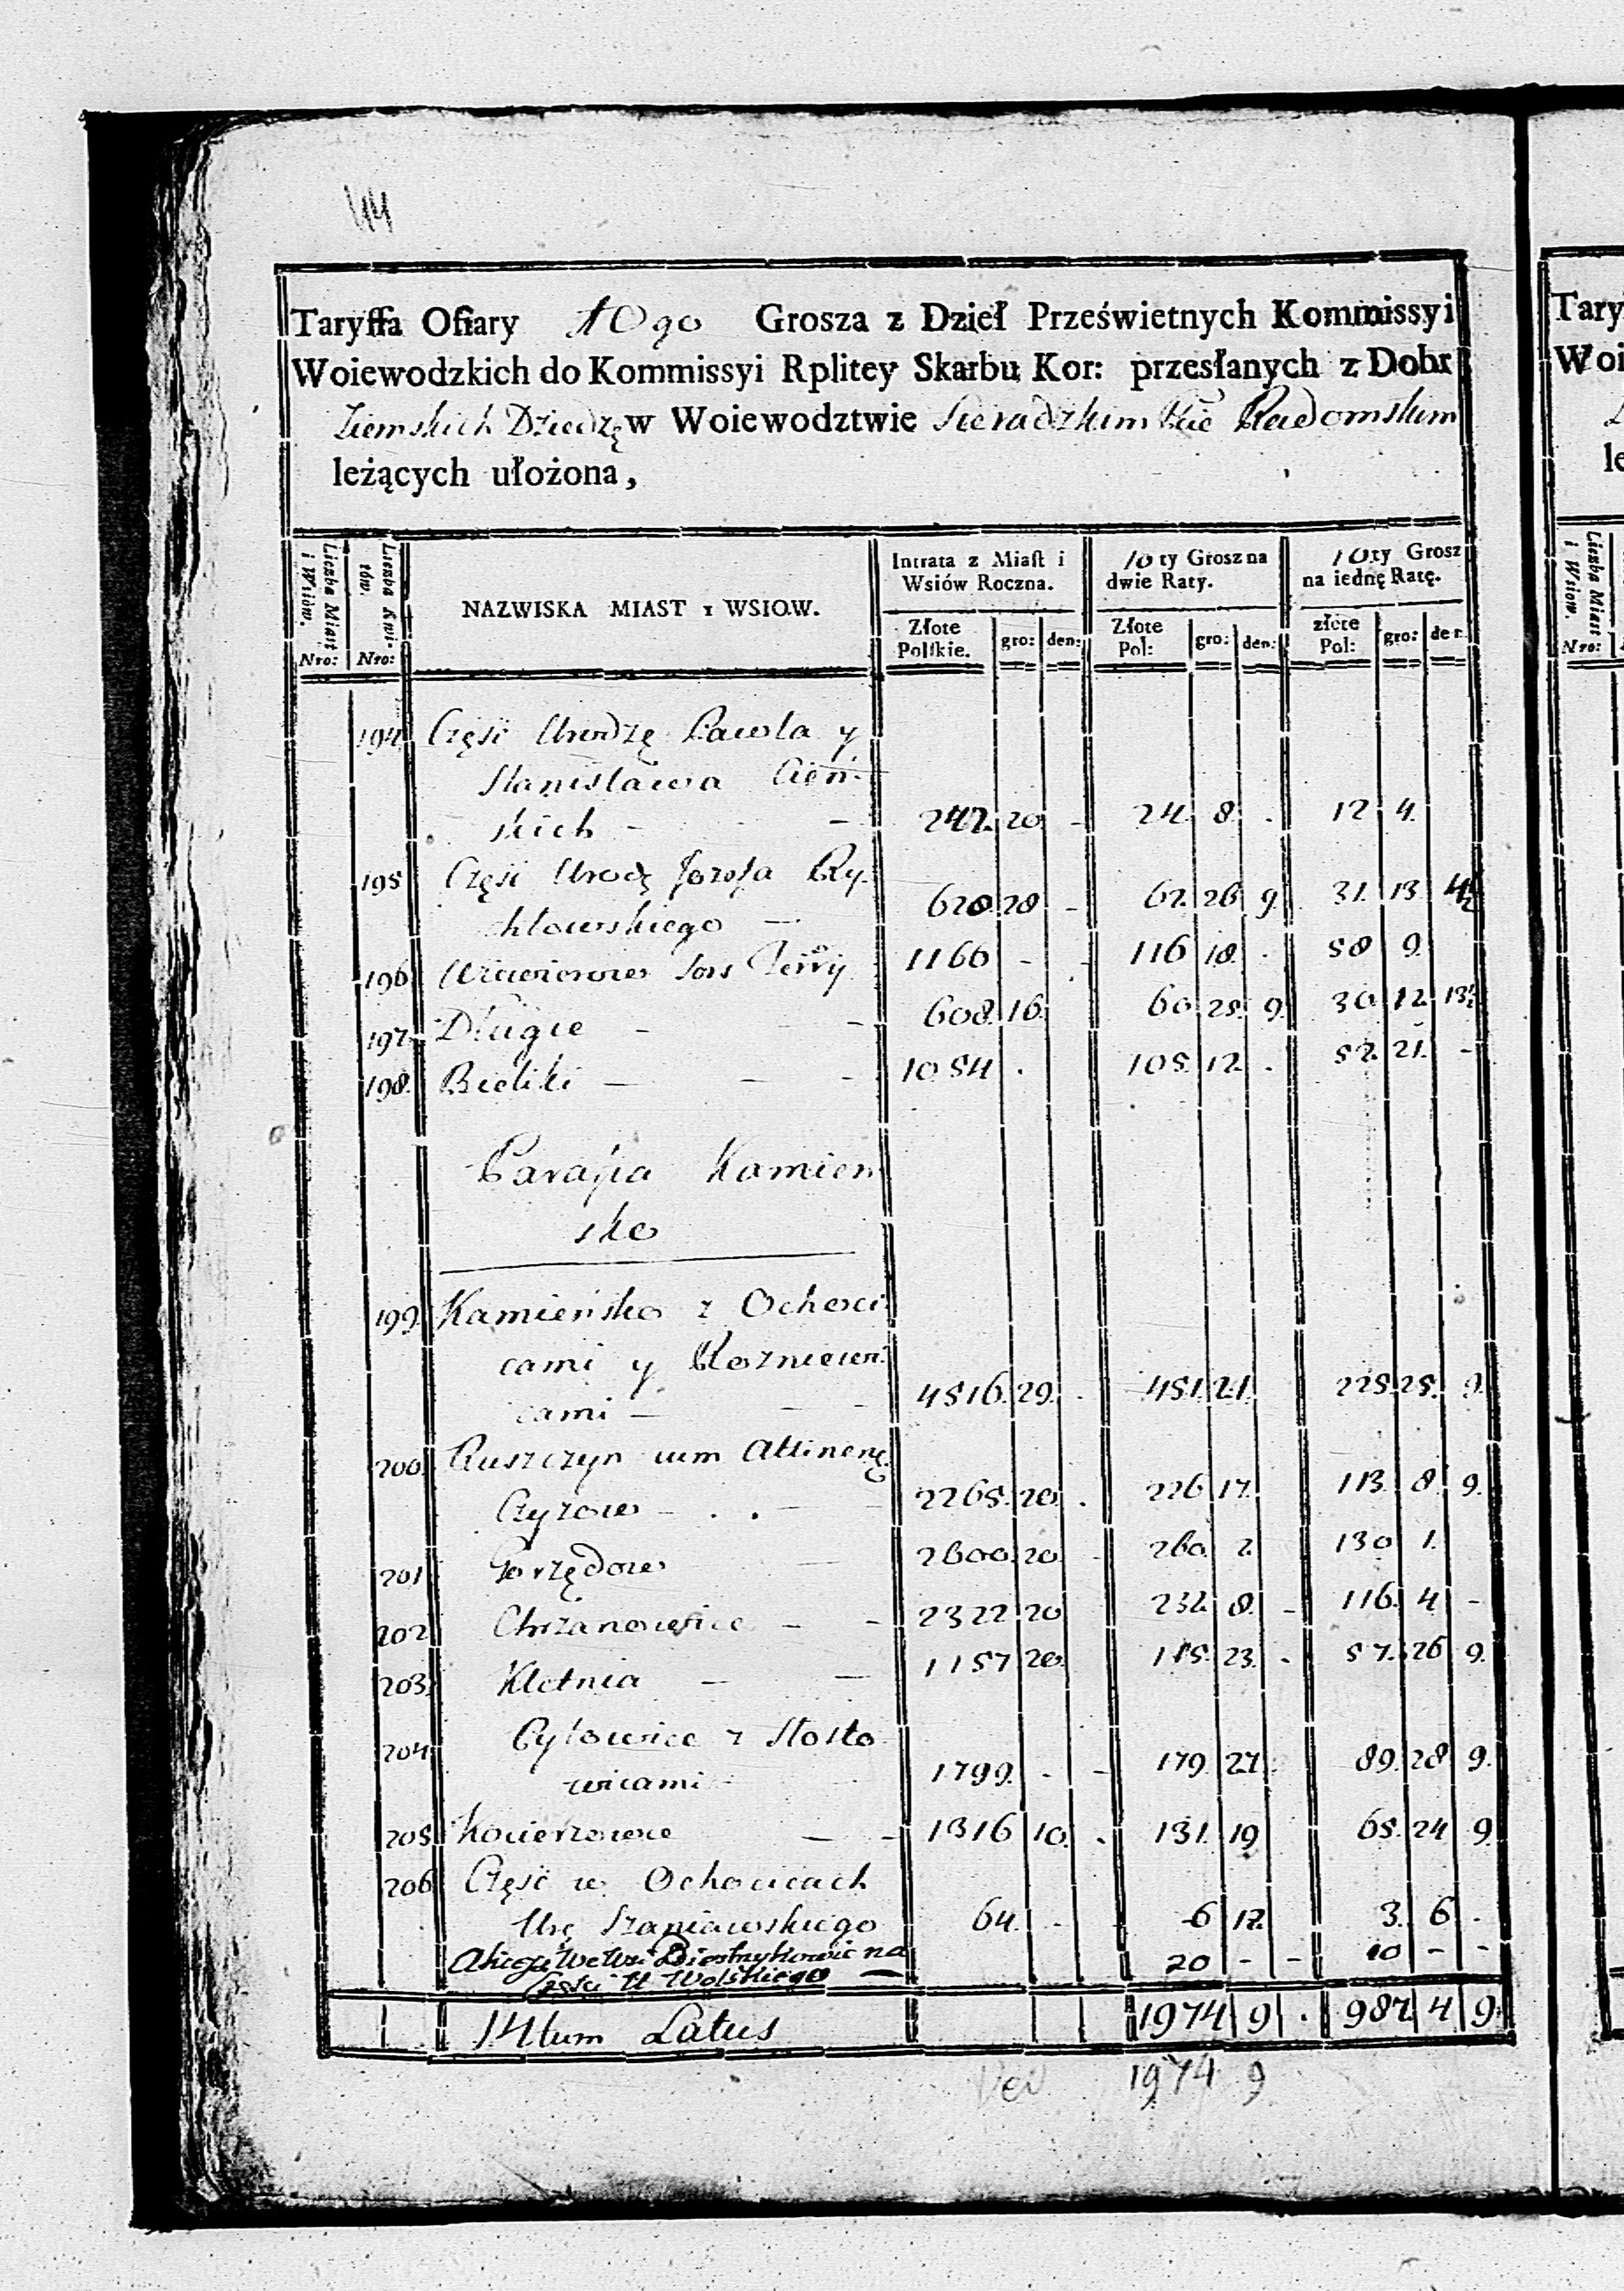 44
Taryffa Ofiary 10go Grosza z Dzieł Prześwietnych Kommissyi
Woiewodzkich do Kommissyi Rplitey Skarbu Kor: przesłanych z Dobr
Ziemskich Dziedzę w Woiewodztwie Sieradzkim Pcie Radomskim
leżących ułożona,
Liczba Miast i Wsiow. Nro:
Liczba Kwitów. Nro:
NAZWISKA MIAST I WSIOW.
Intrata z Miast i Wsiów Roczna.
10 ty Grosz na dwie Raty.
10.ty Grosz na iednę Ratę.
Złote Polskie. gro: den: Złote Pol: gro: den: złote Pol: gro: den
194 Część Urodzę Pawła y
Stanisława Cień-
skich - - 242. 20 - 24. 8. . 12 4.
195 Część Urodz Jozefa Ry-
chłowskiego - 628 28 - 62. 26 9. 31. 13 4½
196 1166 - - 116 18. . 58 9.
197. Długie - - 608. 16. 60 25. 9. 30. 12. 13½
198. Bieliki - - - 1054 . 105. 12. . 52. 21. -
Parafia Kamien
sko
199. Kamieńsko z Ochoci
cami y Kozniewi
cami - - - 4516. 29. . 451. 21. 225. 25. 9.
200. Ruszczyn cum Attinenę
Czyzow - . . - 2265. 20. . 226 17. 113. 8. 9.
201 Gorzędow - 2600. 20. - 260. 2. 130 1.
202 Chrzanowice - - 2322 20 232. 8. - 116. 4 -
203. Kletnia - - 1157 20. 115. 23. . 57. 26 9.
204 Pytowice z Stosto
wicami - 1799. - - 179. 27. 89. 28. 9.
205. Kocierzowe - - 1316 10. . 131. 19 65. 24 9.
206 Część w Ochocicach
Urę Szaniawskiego 64. - 6 12. 3. 6 .
we Wsi na
Części U. Wolskiego - 20 - - 10 - -
14tum Latus 1974 9 . 987. 4 9.
1974 9
Tary
Woi
le
Liczba Miast i Wsiow. Nro: